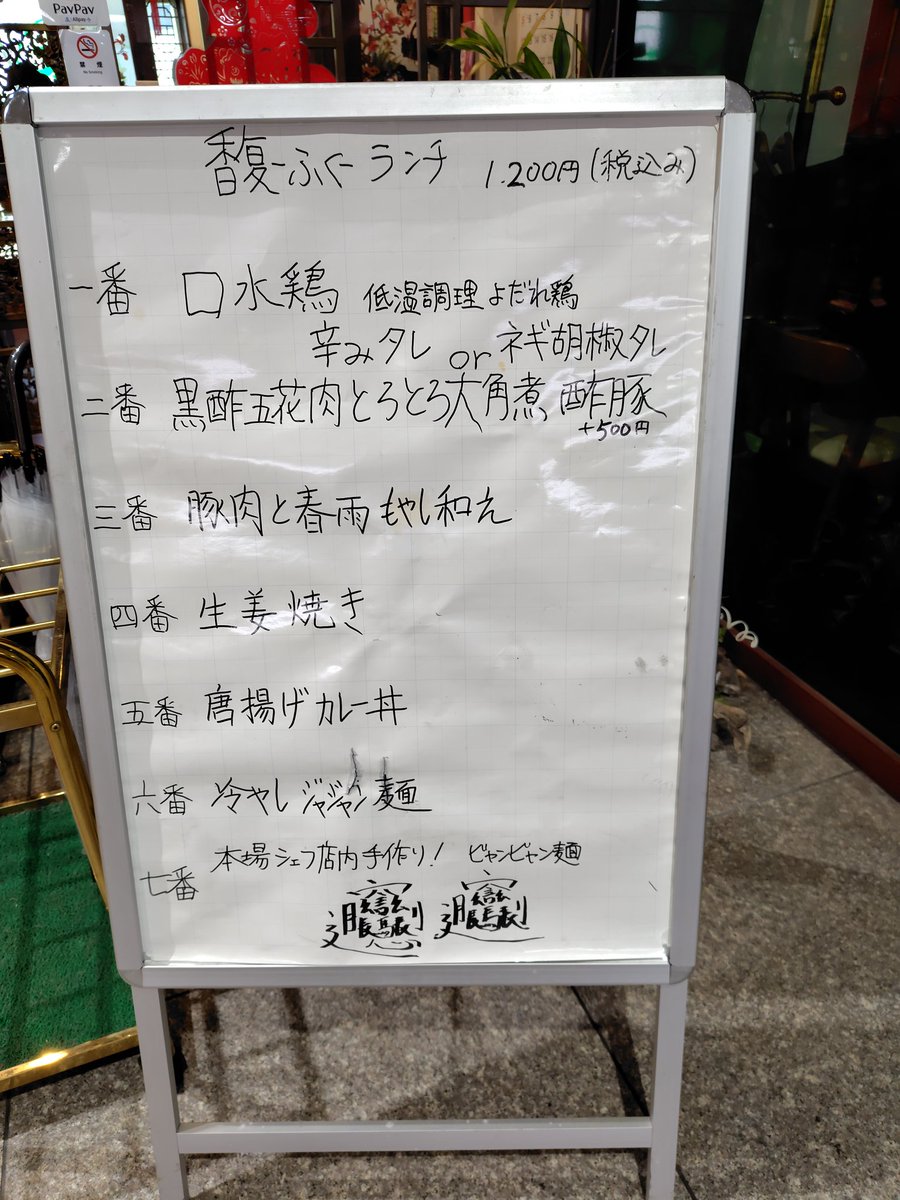 PayPay
Alipay
禁煙
No Smoking
馥ーふくーランチ 1.200円(税込み)
一番 口水鶏 低温調理よだれ鶏
辛みタレ or ネギ胡椒タレ
二番 黒酢五花肉とろとろ大角煮 酢豚
+500円
三番 豚肉と春雨もやし和え
四番 生姜焼き
五番 唐揚げカレー丼
六番 冷やしジャジャン麺
本場シェフ店内手作り! ビャンビャン麺
七番 𰻞𰻞